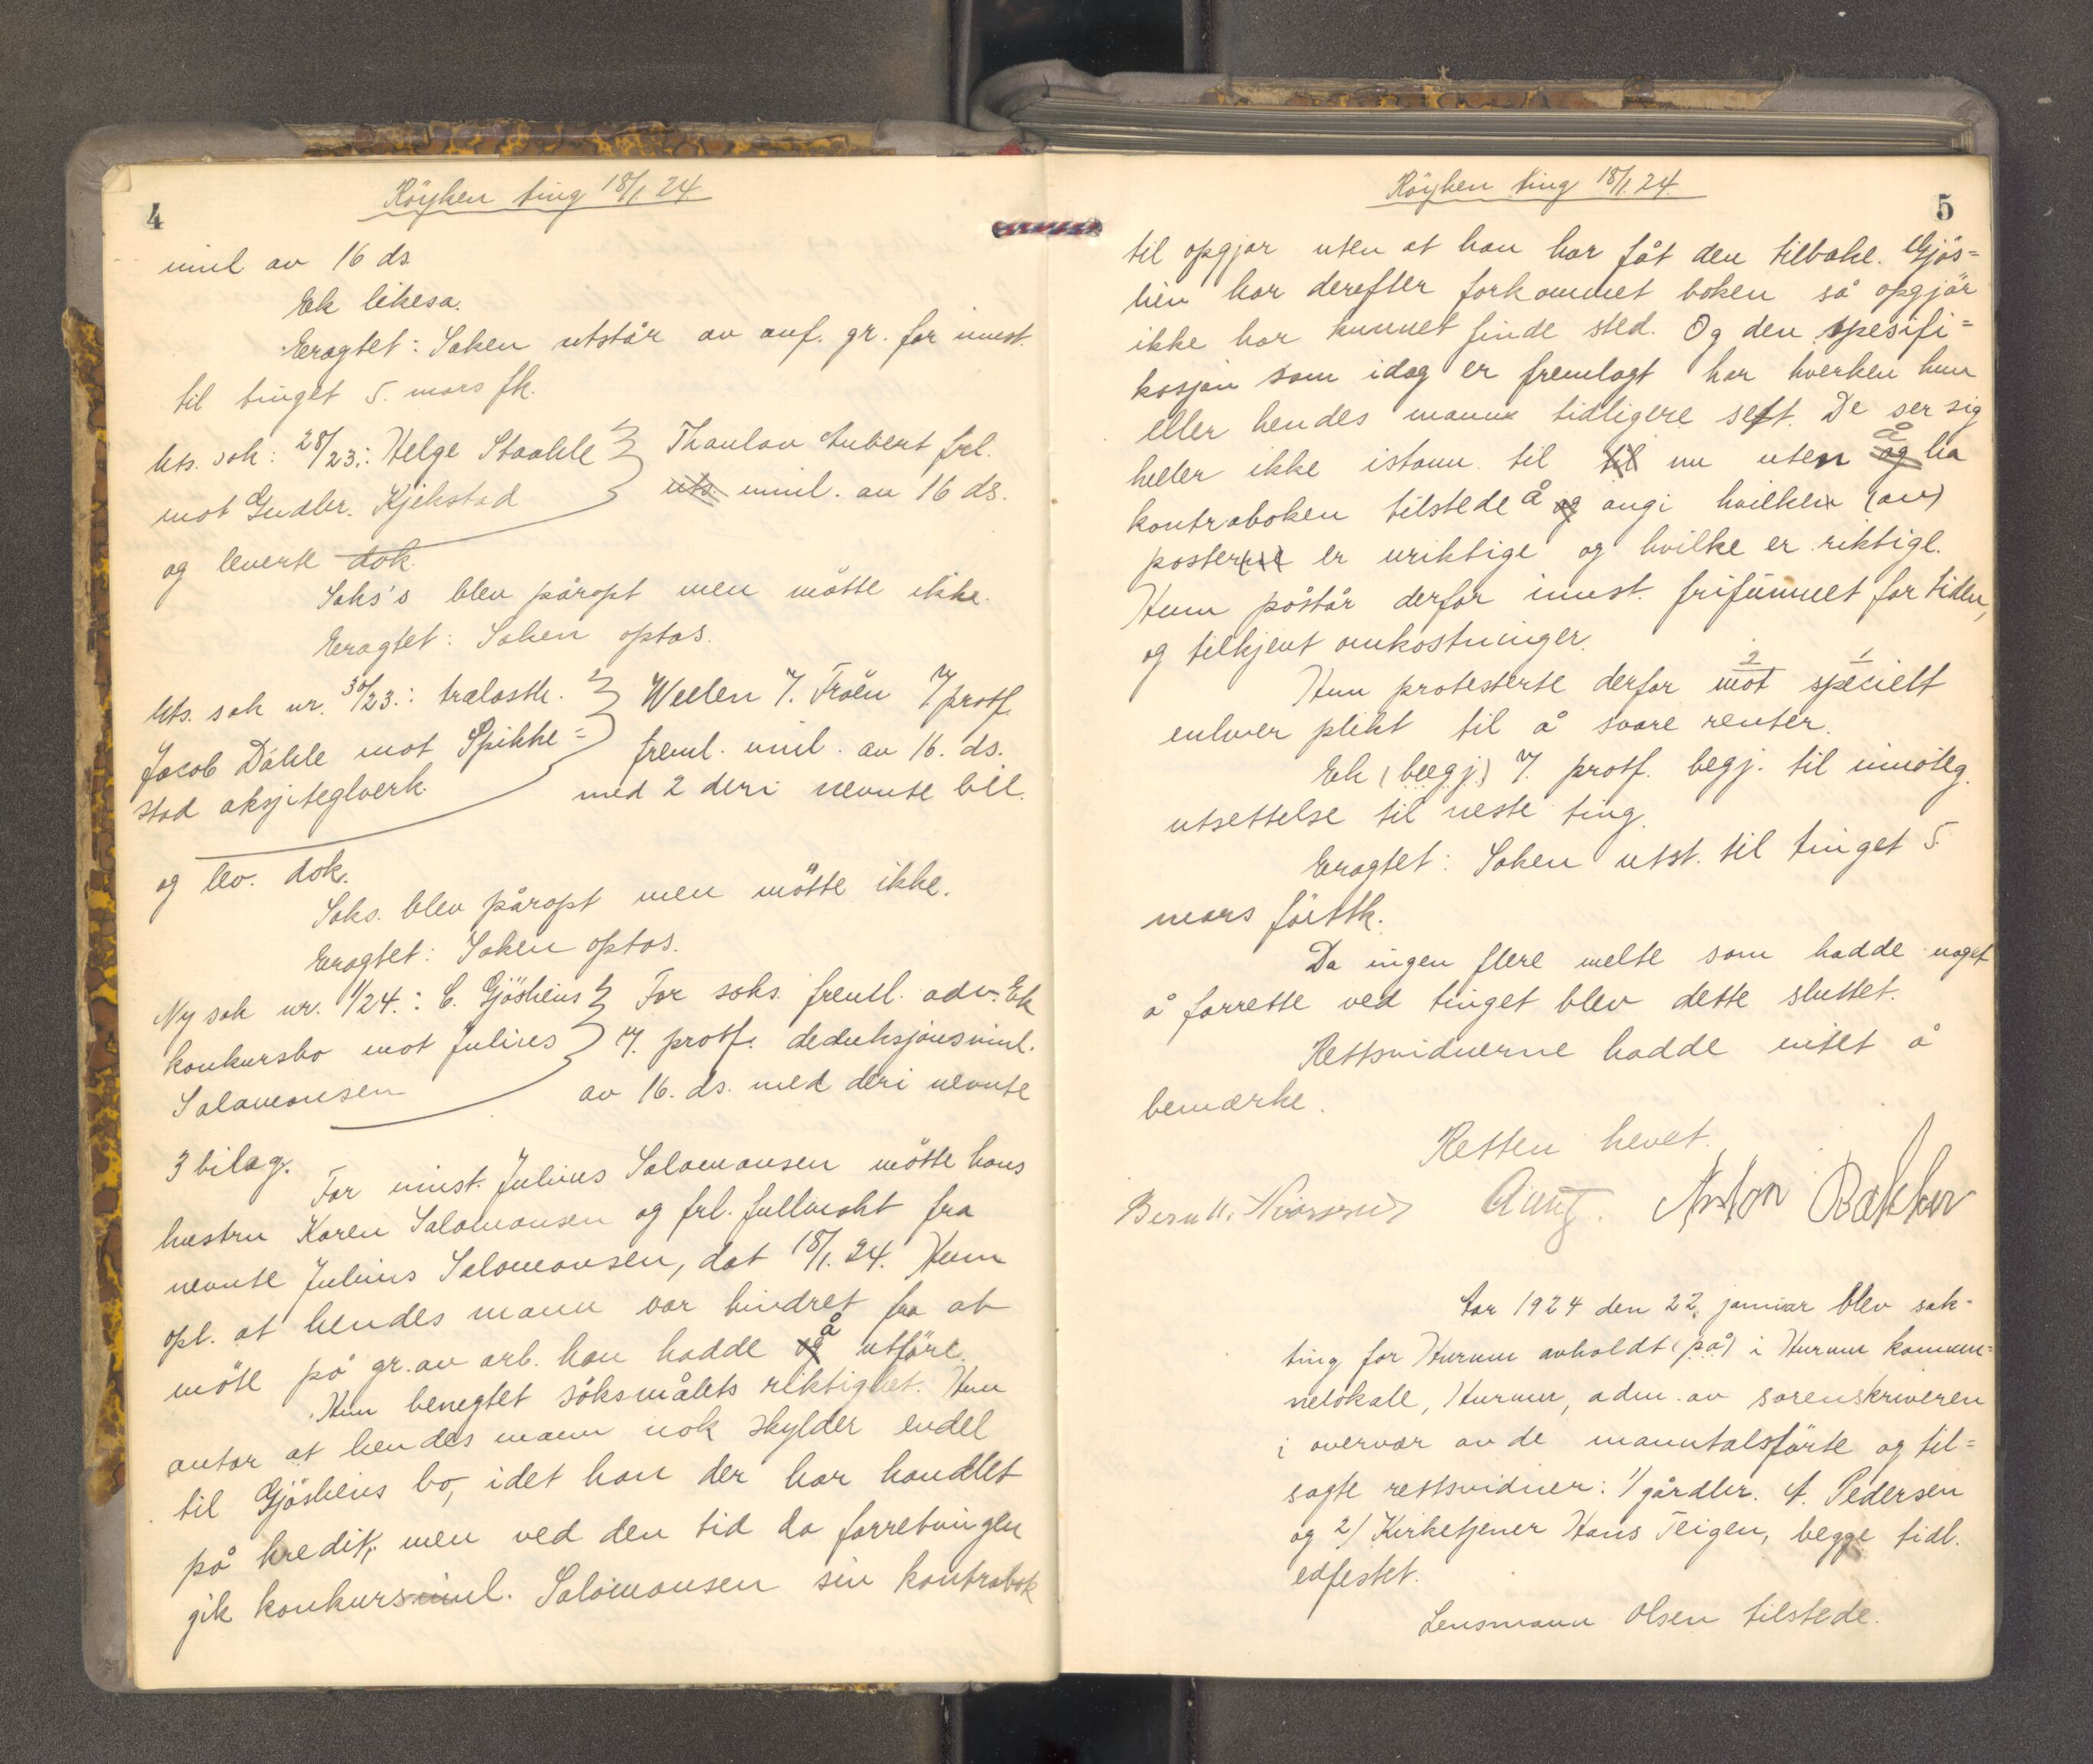 4
Röyken ting 18/1. 24.
innl av 16 ds.
Ek likesa.
Eragtet: Saken utstår av anf. gr. for innst.
til tinget 5. mars fk.
Uts. sak: 28/23.: Helge Staahle
mot Gudbr. Kjekstad
Thaulov Aubert frl.
uts. innl. av 16 ds.
og leverte dok.
Saks's blev påropt men mötte ikke.
Eragtet: Saken optas.
Uts. sak nr. 30/23.: trelastk.
Jacob Dåhle mot Spikke=
stad aksjeteglverk.
Wellen f. Fröen f prof.
freml. innl. av 16. ds.
med 2 deri nevnte bil.
og lev. dok.
Saks. blev påropt men mötte ikke.
Eragtet: Saken optas.
Ny sak nr. 1/24.: C. Gjösheins
konkursbo mot Julius
Salamonsen
For saks. freml. adv. Ek
f. protf. deduksjonsinnl.
av 16. ds. med deri nevnte
3 bilag.
For innst. Julius Salamonsen mötte hans
hustru Karen Salomonsen og frl. fullmakt fra
nevnte Julius Salomonsen, dat 18/1. 24. Hun
opl. at hendes mann var hindret fra at
möte på gr. av arb. han hadde og å utföre.
Hun benegtet söksmålets riktighet. Hun
antar at hendes mann nok skylder endel
til Gjösheins bo, idet han der har handlet
på kredit, men ved den tid da forretningen
gik konkurs innl. Salomonsen sin kontrabok
5
Röyken ting 18/1. 24.
til opgjør uten at han har fåt den tilbake. Gjös=
hein har derefter forkommet boken så opgjör
ikke har kunnet finde sted. Og den spesifi=
kasjon som idag er fremlagt har hverken hun
eller hendes mann tidligere sett. De ser sig
heller ikke istann. til til nu uten og å ha
kontraboken tilstede å og angi hvilken (av)
posterne er uriktige og hvilke er riktige.
Hun påstår derfor innst. frifunnet for tiden,
og tilkjent omkostninger.
Hun protesterte derfor mot specielt
2 1
enhver plikt til å svare renter.
Ek (begj.) f. protf. begj. til imöteg.
utsettelse til neste ting.
Eragtet: Saken utst. til tinget 5.
mars förstk.
Da ingen flere meldte som hadde noget
å forrette ved tinget blev dette sluttet.
Rettsvidnerne hadde intet å
bemærke.
Retten hevet.
Anton Bakker
Aar 1924 den 22. januar blev sak-
ting for Hurum avholdt (på) i Hurum kommu=
nelokale, Hurum, adm. av sorenskriveren
i overvær av de manntalsförte og til=
sagte rettsvidner: 1/ gårdbr. A. Pedersen
og 2/ Kirketjener Hans Teigen, begge tidl.
edfestet.
Lensmann Olsen tilstede.